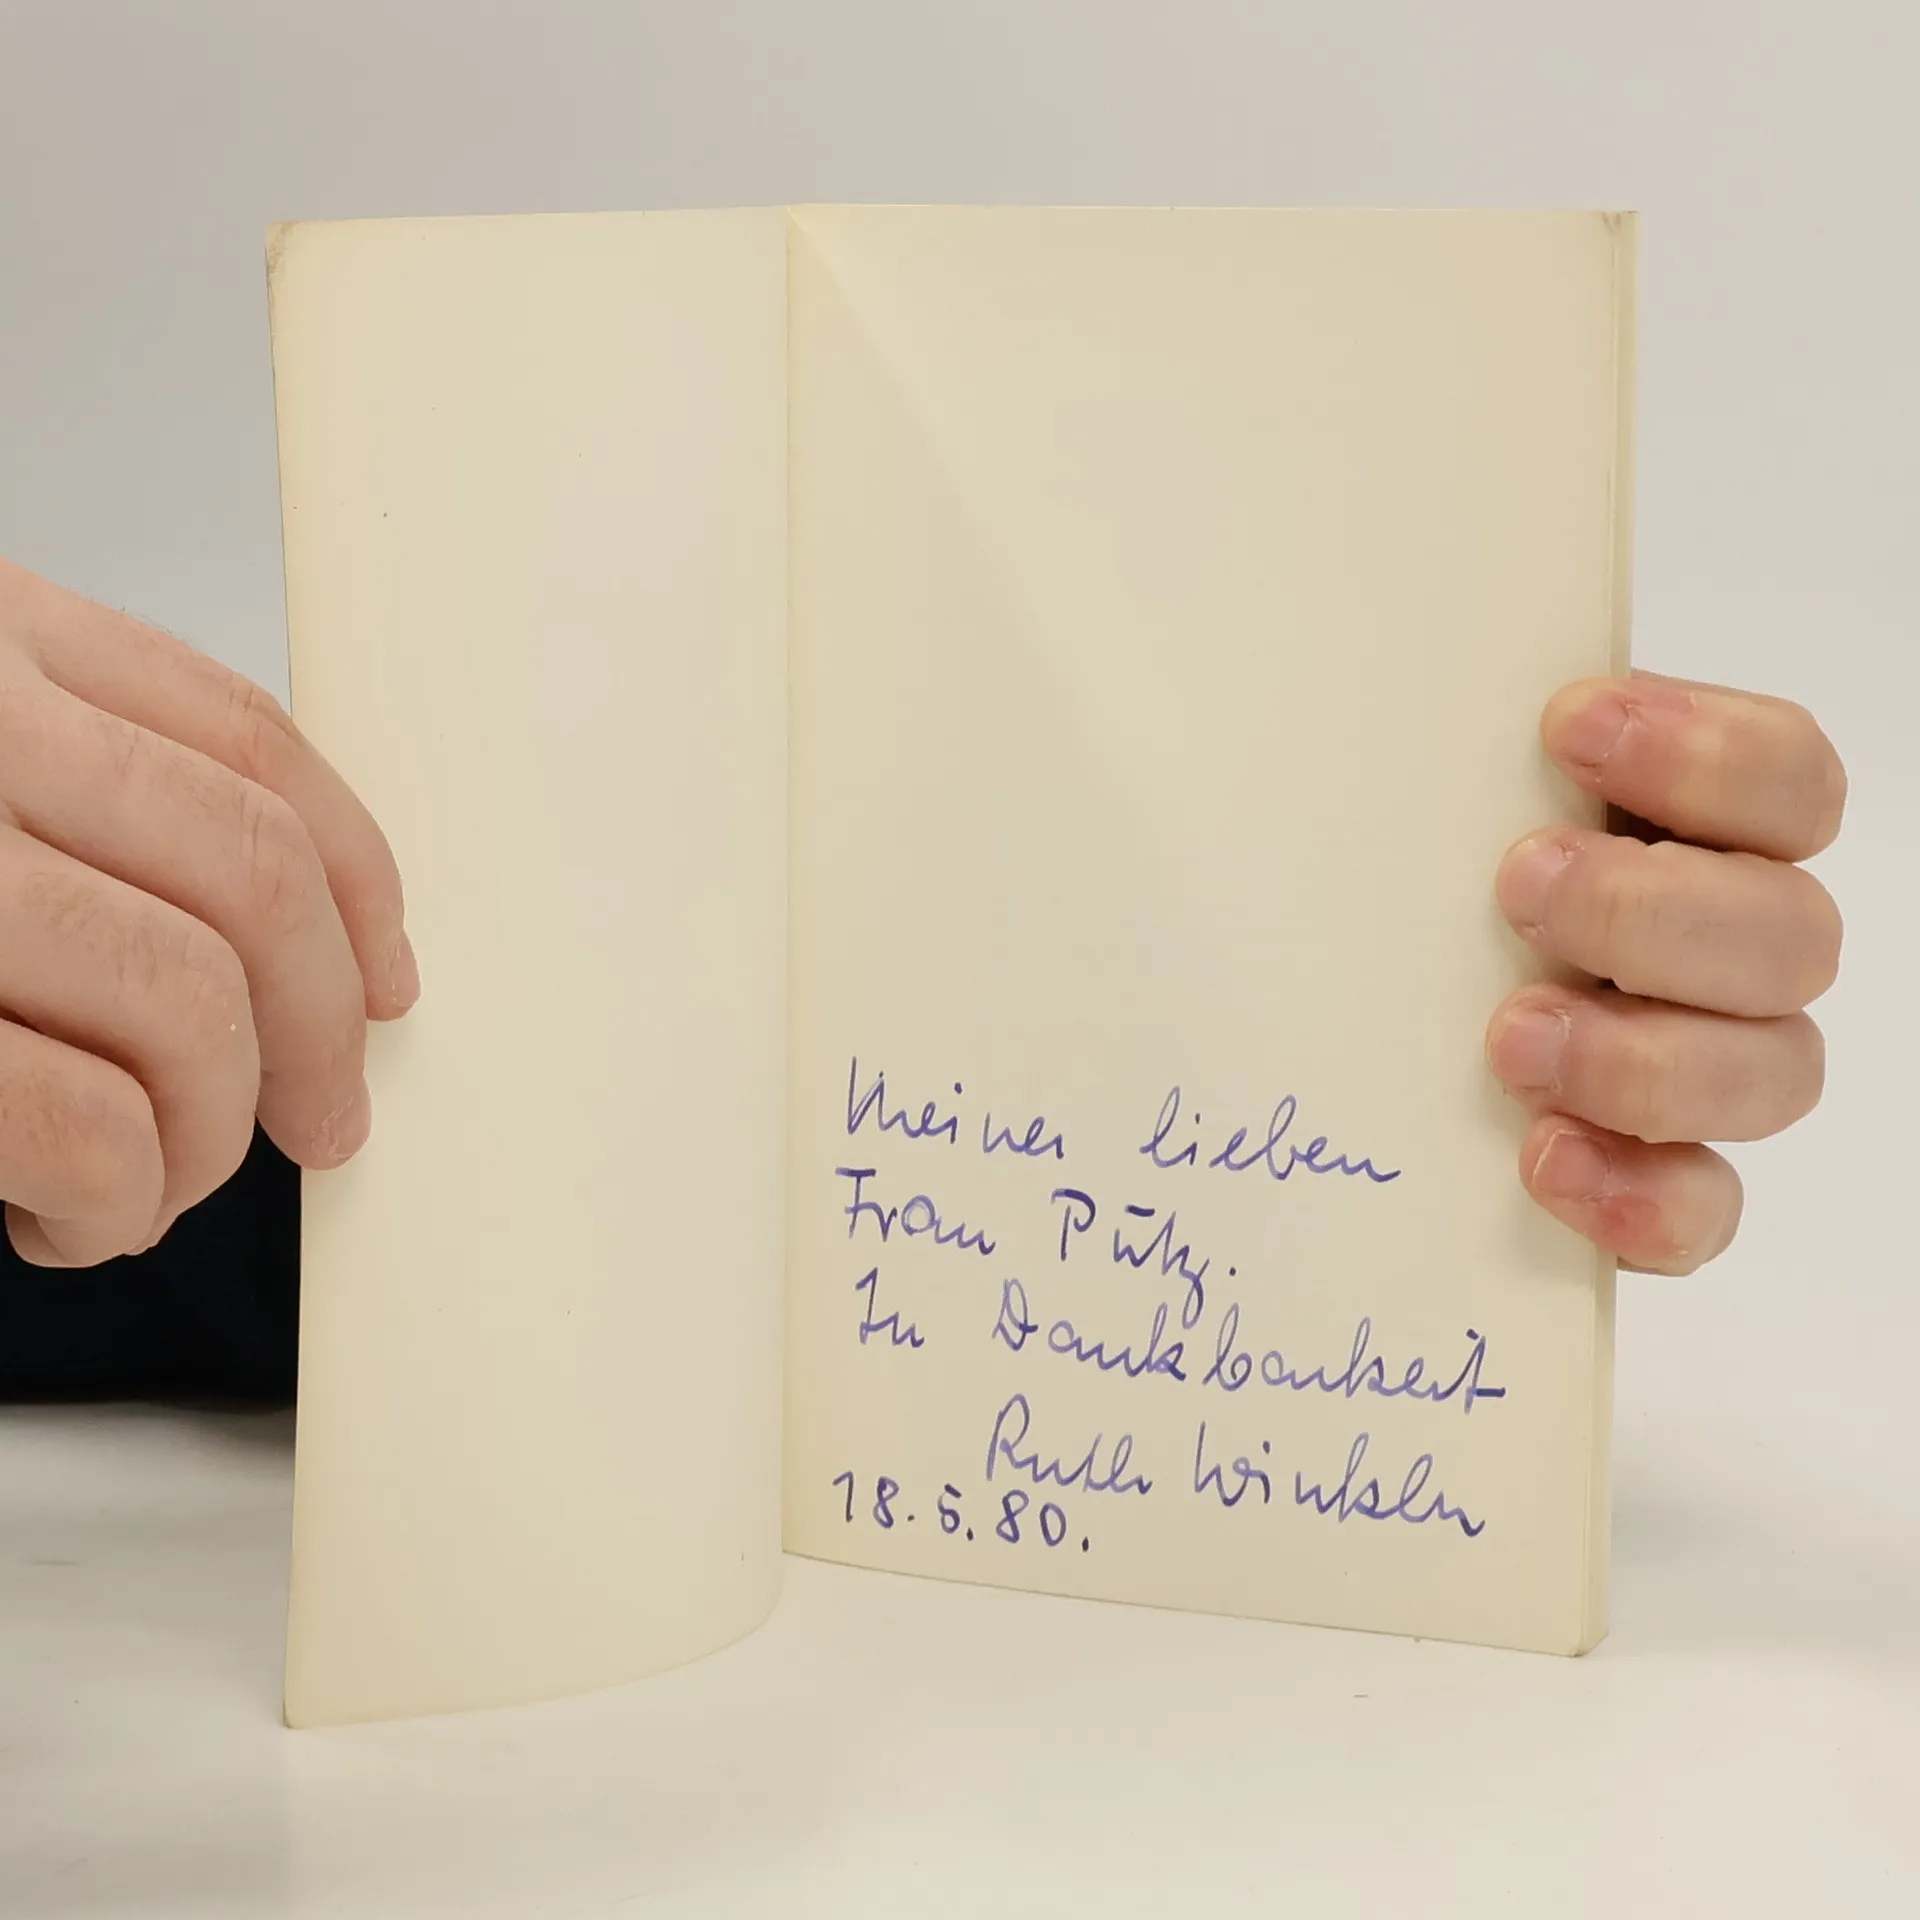 Meiner lieben
Frau Pütz.
In Dankbarkeit
Ruth Winkler
18.5.80.